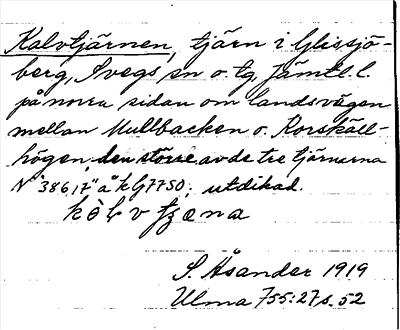 Kalvtjärnen, tjärn i Glissjö-
berg, Svegs sn o. tg, Jämtl. l.
på norra sidan om landsvägen
mellan Mullbacken o. Korskäll-
högen, den större av de tre tjärnarna
N "386,7" å k G7750; utdikad.
S. Åsander 1919
Ulma 755:27 s. 52